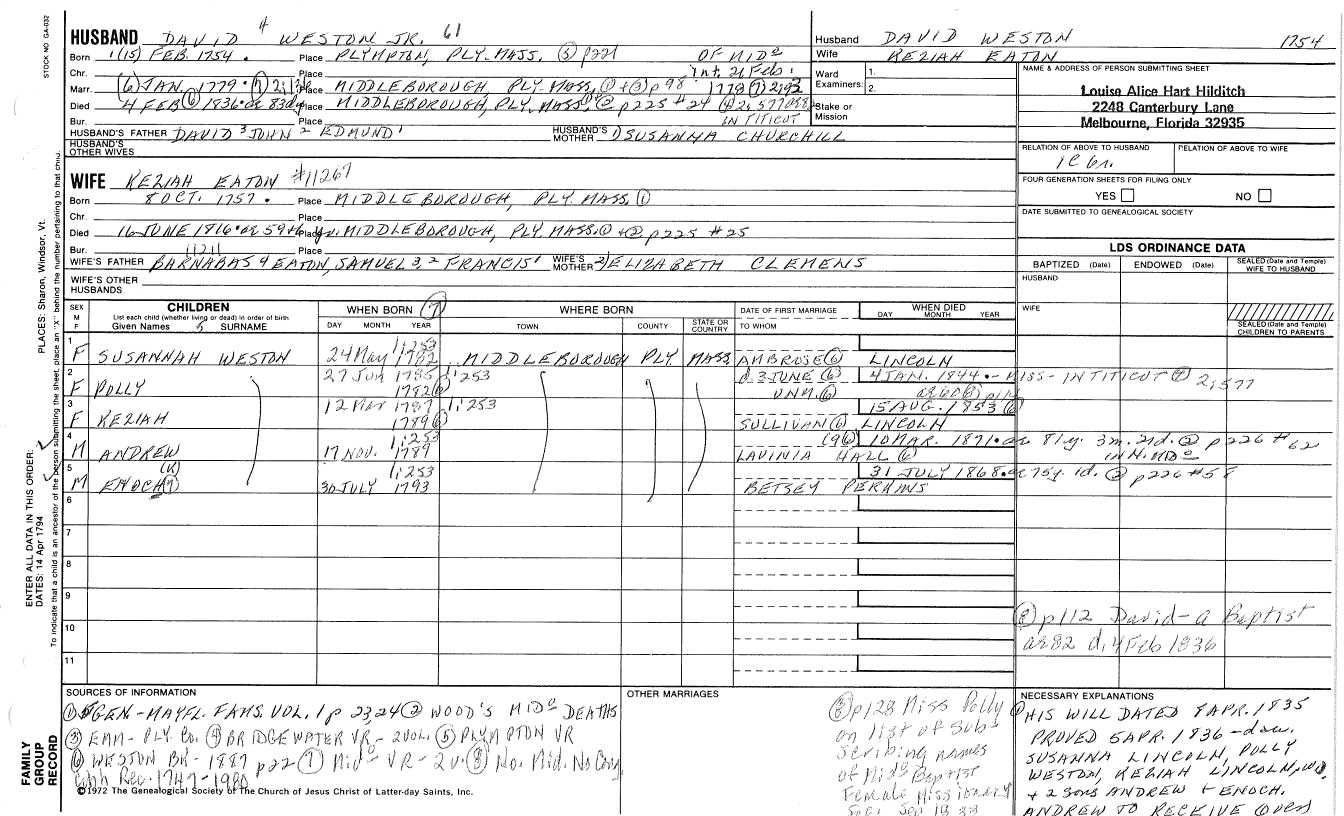 STOCK NO. GA-032
HUSBAND DAVID 4 WESTON JR. 61
Born 1(15) FEB. 1754. Place PLYMPTON, PLY. MASS. ⑤ p221
OF MIDo
Chr. Place Int. 21 Feb.
Marr. (6) JAN. 1779 ⑦ Place MIDDLEBOROUGH, PLY. MASS. ① + ③ p98 1778 ⑦ 2:93
Died 4 FEB ⑥ 1836 ae 83dy Place MIDDLEBOROUGH, PLY. MASS. ② p225 #24 ④ 2:577
Bur. Place IN TITICUT
HUSBAND'S FATHER DAVID 3 JOHN 2 EDMUND 1 HUSBAND'S MOTHER SUSANNA CHURCHILL
HUSBAND'S OTHER WIVES
Husband DAVID WESTON 1754
Wife KEZIAH EATON
Ward Examiners: 1. 2.
Stake or Mission
NAME & ADDRESS OF PERSON SUBMITTING SHEET
Louise Alice Hart Hilditch
2248 Canterbury Lane
Melbourne, Florida 32935
RELATION OF ABOVE TO HUSBAND RELATION OF ABOVE TO WIFE
FOUR GENERATION SHEETS FOR FILING ONLY
YES NO
DATE SUBMITTED TO GENEALOGICAL SOCIETY
WIFE KEZIAH EATON #11267
Born 8 OCT. 1757. Place MIDDLEBOROUGH, PLY. MASS. ①
Chr. Place
Died 16 JUNE 1816. ae 59 Place MIDDLEBOROUGH, PLY. MASS. ① + ② p225 #25
Bur. 11211
WIFE'S FATHER BARNABAS 4 EATON, SAMUEL 3, 2 FRANCIS 1 WIFE'S MOTHER 2) ELIZABETH CLEMENS
WIFE'S OTHER HUSBANDS
LDS ORDINANCE DATA
BAPTIZED (Date) ENDOWED (Date) SEALED (Date and Temple) WIFE TO HUSBAND
HUSBAND
WIFE
SEALED (Date and Temple) CHILDREN TO PARENTS
SEX M F CHILDREN WHEN BORN ⑦ WHERE BORN DATE OF FIRST MARRIAGE WHEN DIED
List each child (whether living or dead) in order of birth
Given Names 5 SURNAME DAY MONTH YEAR TOWN COUNTY STATE OR COUNTRY TO WHOM DAY MONTH YEAR
1 1:253
F SUSANNAH WESTON 24 May 1782 MIDDLEBOROUGH PLY MASS. AMBROSE ⑥ LINCOLN
2 27 Jun 1785 1:253 d. 3 JUNE ⑥ 4 JAN. 1844. - MISS - IN TITICUT ④ 2:577
F POLLY 1782 ⑥ UNM. ⑥
3 12 Mar 1787 1:253 15 AUG. 1853 ⑥
F KEZIAH 1789 ⑥ SULLIVAN ⑥ LINCOLN
4 1:253 (9⑥) 10 MAR. 1871. ae 81y. 3m. 21d. ② p226 #62
M ANDREW 17 NOV. 1789 LAVINIA HALL ⑥ IN N. MIDo
5 (K) 1:253 31 JULY 1868. ae 75y. 1d. ② p226 #58
M ENOCH ⑦ 30 JULY 1793 BETSEY PERKINS
6
7
8
9
10
11
⑧ p112 David - a Baptist
ae 82 d. 4 Feb 1836
SOURCES OF INFORMATION
① GEN. - MAYFL. FAMS. VOL. 1 p 23, 24 ② WOOD'S MIDo DEATHS
③ EMM - PLY. Co. ④ BRIDGEWATER VR - 2 VOL. ⑤ PLYMPTON VR
⑥ WESTON BK - 1887 p22 ⑦ Mido VR - 2v. ⑧ No. Mid. No Cong
Rec. 1747-1980
©1972 The Genealogical Society of The Church of Jesus Christ of Latter-day Saints, Inc.
OTHER MARRIAGES
⑧ p128 Miss Polly
on list of Sub-
scribing names
of Mido Baptist
Female Missionary
Soc. Sep 1833
NECESSARY EXPLANATIONS
① HIS WILL DATED 8 APR. 1835
PROVED 5 APR. 1836 - dau.
SUSANNA LINCOLN, POLLY
WESTON, KEZIAH LINCOLN,
+ 2 SONS ANDREW + ENOCH.
ANDREW TO RECEIVE
ENTER ALL DATA IN THIS ORDER:
DATES: 14 Apr 1794 PLACES: Sharon, Windsor, Vt.
To indicate that a child is an ancestor of the person submitting the sheet, place an "X" behind the number pertaining to that child.
FAMILY GROUP RECORD